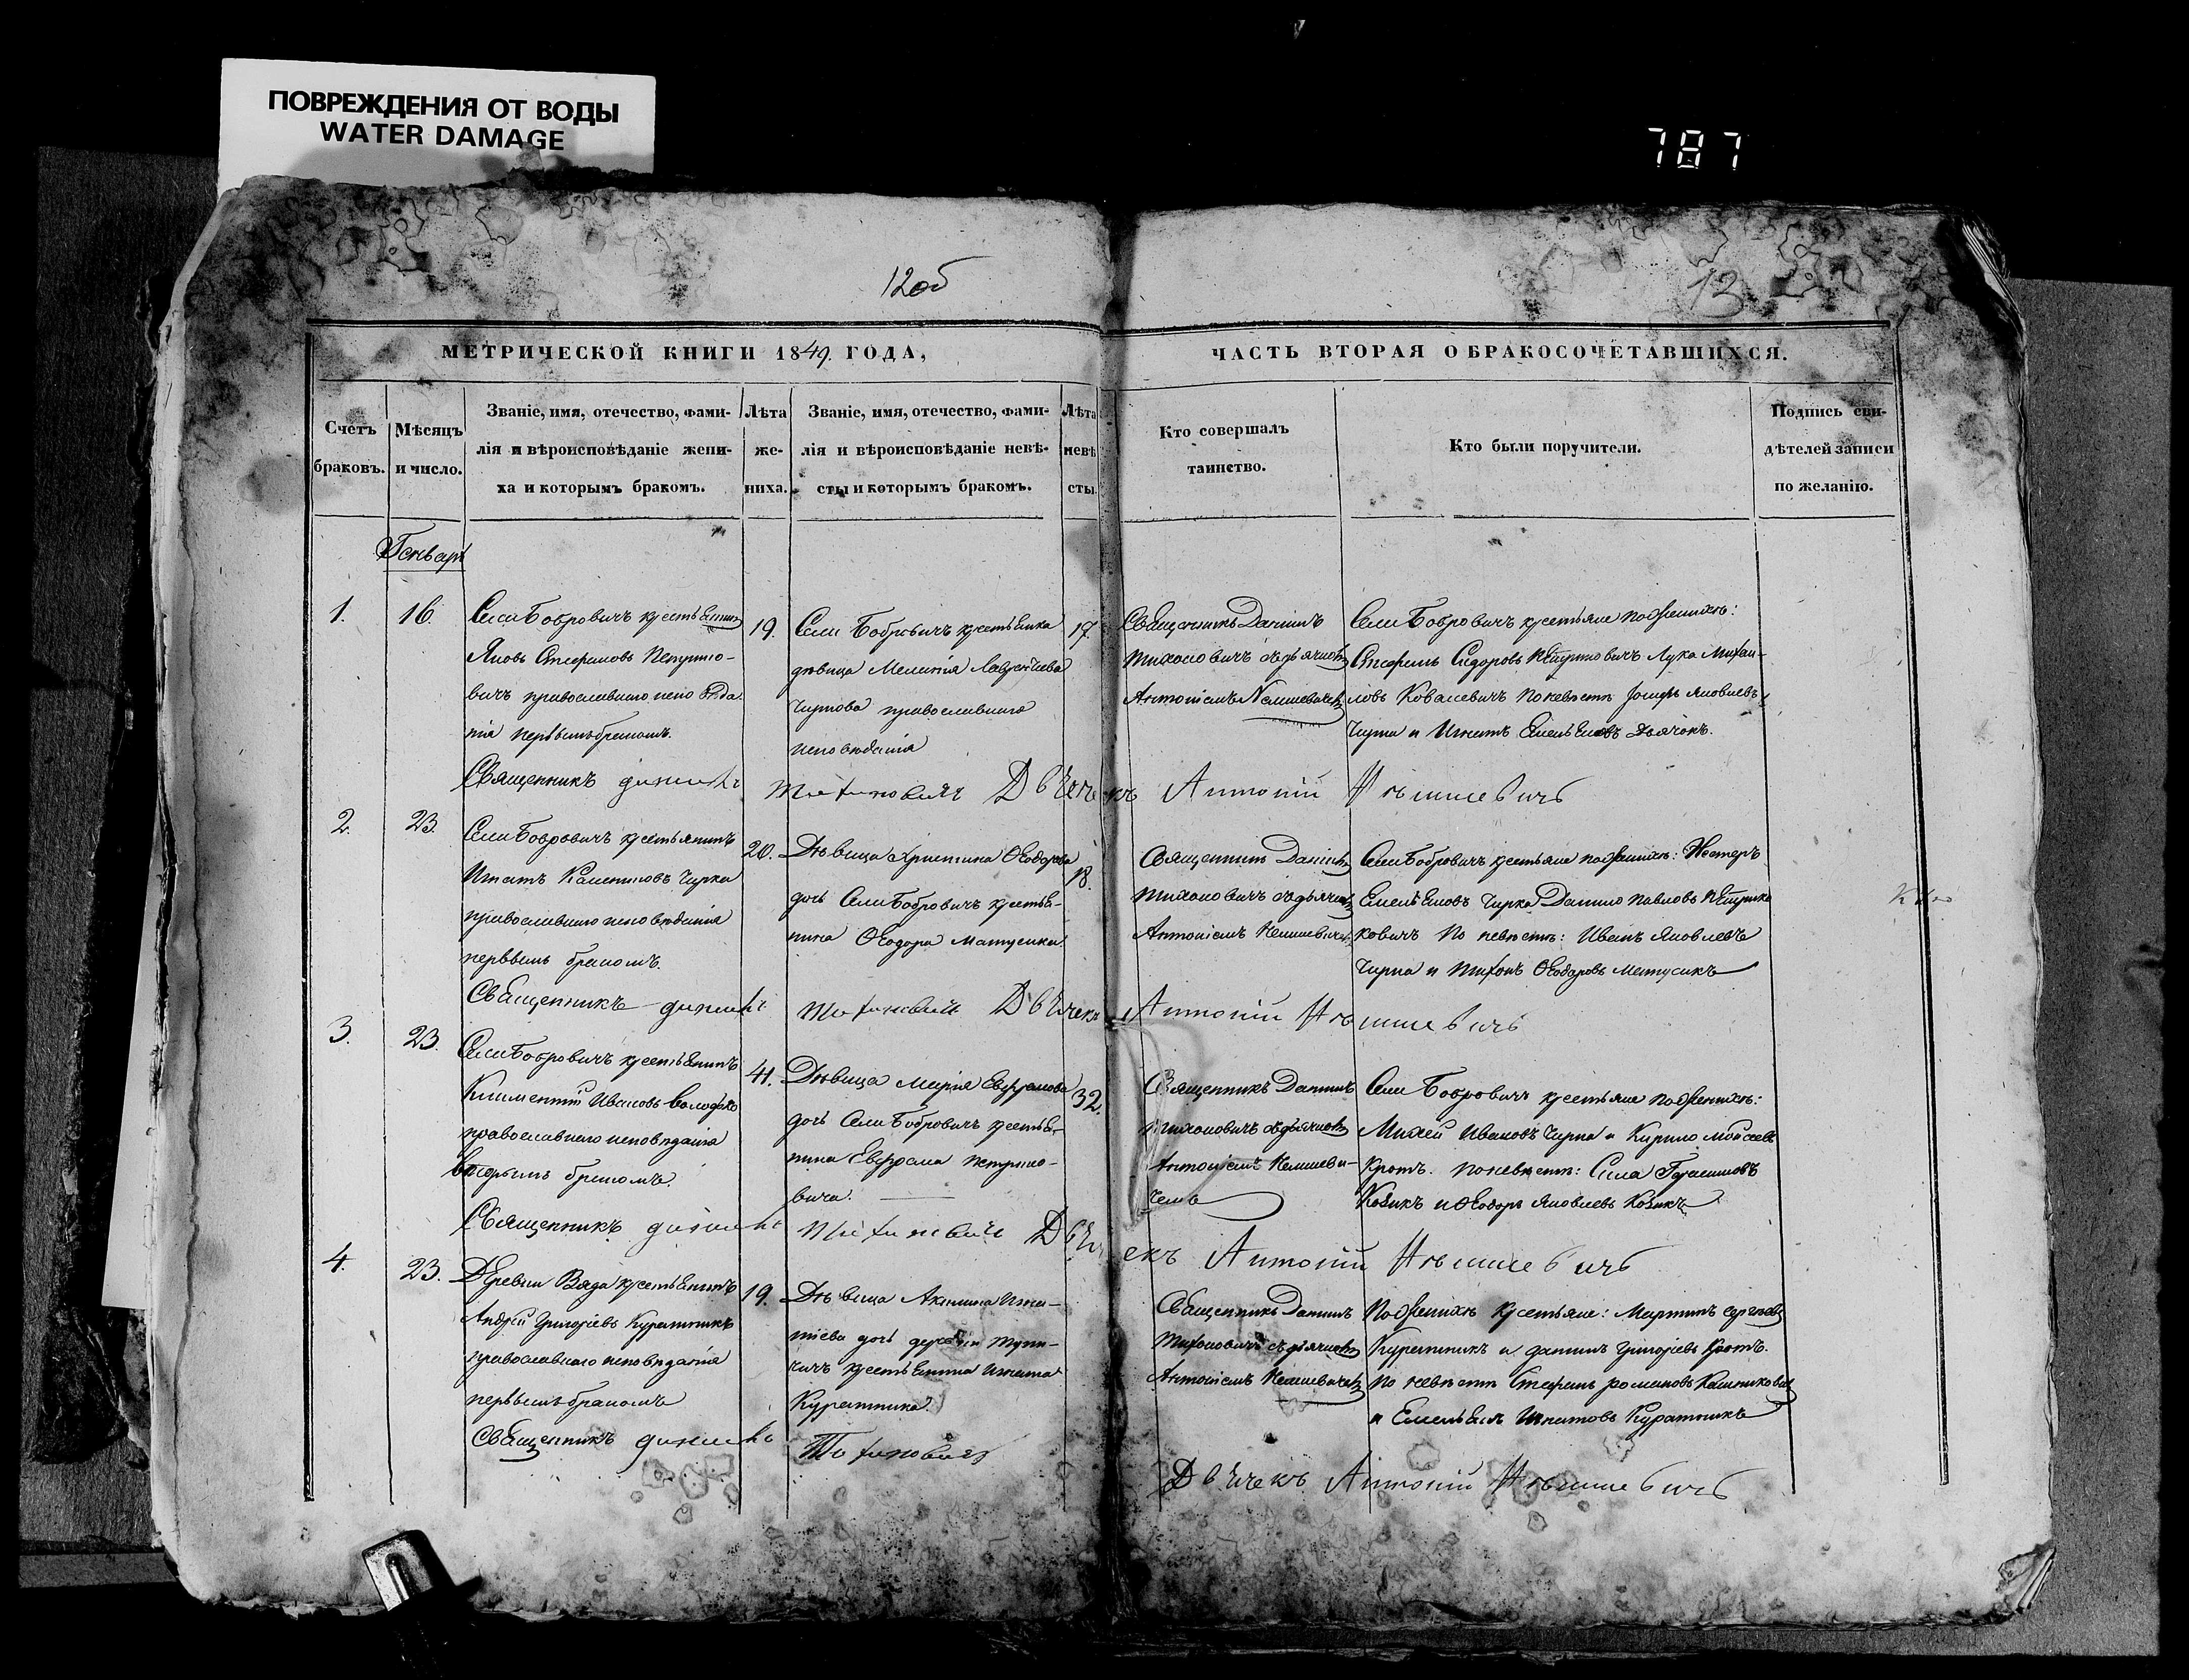 ПОВРЕЖДЕНИЯ ОТ ВОДЫ
WATER DAMAGE
787
12об
13
МЕТРИЧЕСКОЙ КНИГИ 1849. ГОДА,
ЧАСТЬ ВТОРАЯ О БРАКОСОЧЕТАВШИХСЯ.
Счетъ
браковъ.
Мѣсяцъ
и число.
Званіе, имя, отечество, фами-
лія и вѣроисповѣданіе жени-
ха и которымъ бракомъ.
Лѣта
же-
ниха.
Званіе, имя, отечество, фами-
лія и вѣроисповѣданіе невѣ-
сты и которымъ бракомъ.
Лѣта
невѣ
сты.
Кто совершалъ
таинство.
Кто были поручители.
Подпись сви-
дѣтелей записи
по желанію.
Генварь
1.
16.
Села Бобровичъ крестьянинъ
Яковъ Стефановъ
вичъ православнаго исповѣда
нія первымъ бракомъ.
19.
Села Бобровичъ крестьянка
дѣвица Меланія Лаврентіева
православнаго
исповѣданія
17.
Священникъ Даніилъ
Тихоновичъ съ дьячкомъ
Антоніемъ
Села Бобровичъ крестьяне по женихѣ:
Стефанъ Сидоровъ Лука Михаи-
ловъ Ковалевичъ по невѣстѣ Іосифъ Яковлевъ
и Игнатъ Емельяновъ Дьячокъ.
Священникъ Даніилъ Тихоновичъ Дьячекъ Антоній
2.
23.
Села Бобровичъ крестьянинъ
Игнатъ Чирка
православнаго исповѣданія
первымъ бракомъ.
20.
Дѣвица Христина Ѳеодорова
дочь Села Бобровичъ крестья-
нина Ѳеодора Матусика
18.
Священникъ Даніилъ
Тихоновичъ съ дьячкомъ
Антоніемъ
Села Бобровичъ крестьяне по женихѣ: Нестеръ
Емельяновъ Чирка Данило Павловъ
ковичъ по невѣстѣ: Иванъ Яковлевъ
и Тихонъ Ѳеодоровъ Матусикъ
Священникъ Даніилъ Тихоновичъ Дьячекъ Антоній
3.
23.
Села Бобровичъ крестьянинъ
Климентій Ивановъ Володько
православнаго исповѣданія
вторымъ бракомъ.
41.
Дѣвица Марія Евфремова
дочь Села Бобровичъ крестья-
нина Евфрема
вича.
32.
Священникъ Даніилъ
Тихоновичъ съ дьячкомъ
Антоніемъ
чемъ
Села Бобровичъ крестьяне по женихѣ:
Михей Ивановъ и Кирило Моисеевъ
Кротъ. по невѣстѣ: Сила Герасимовъ
Козикъ и Ѳеодоръ Яковлевъ Козикъ
Священникъ Даніилъ Тихоновичъ Дьячекъ Антоній
4.
23.
Деревни Вяда крестьянинъ
Андрій Григорьевъ Куратникъ
православнаго исповѣданія
первымъ бракомъ
19.
Дѣвица Акилина Игна-
тіева дочь деревни Тупи-
чичъ крестьянина Игната
Куратника.
Священникъ Даніилъ
Тихоновичъ съ дьячкомъ
Антоніемъ
По женихѣ крестьяне: Мартинъ Сергѣевъ
Куратникъ и Даніилъ Григорьевъ Кротъ.
по невѣстѣ Стефанъ Романовъ
и Емельянъ Игнатовъ Куратникъ
Священникъ Даніилъ Тихоновичъ
Дьячекъ Антоній